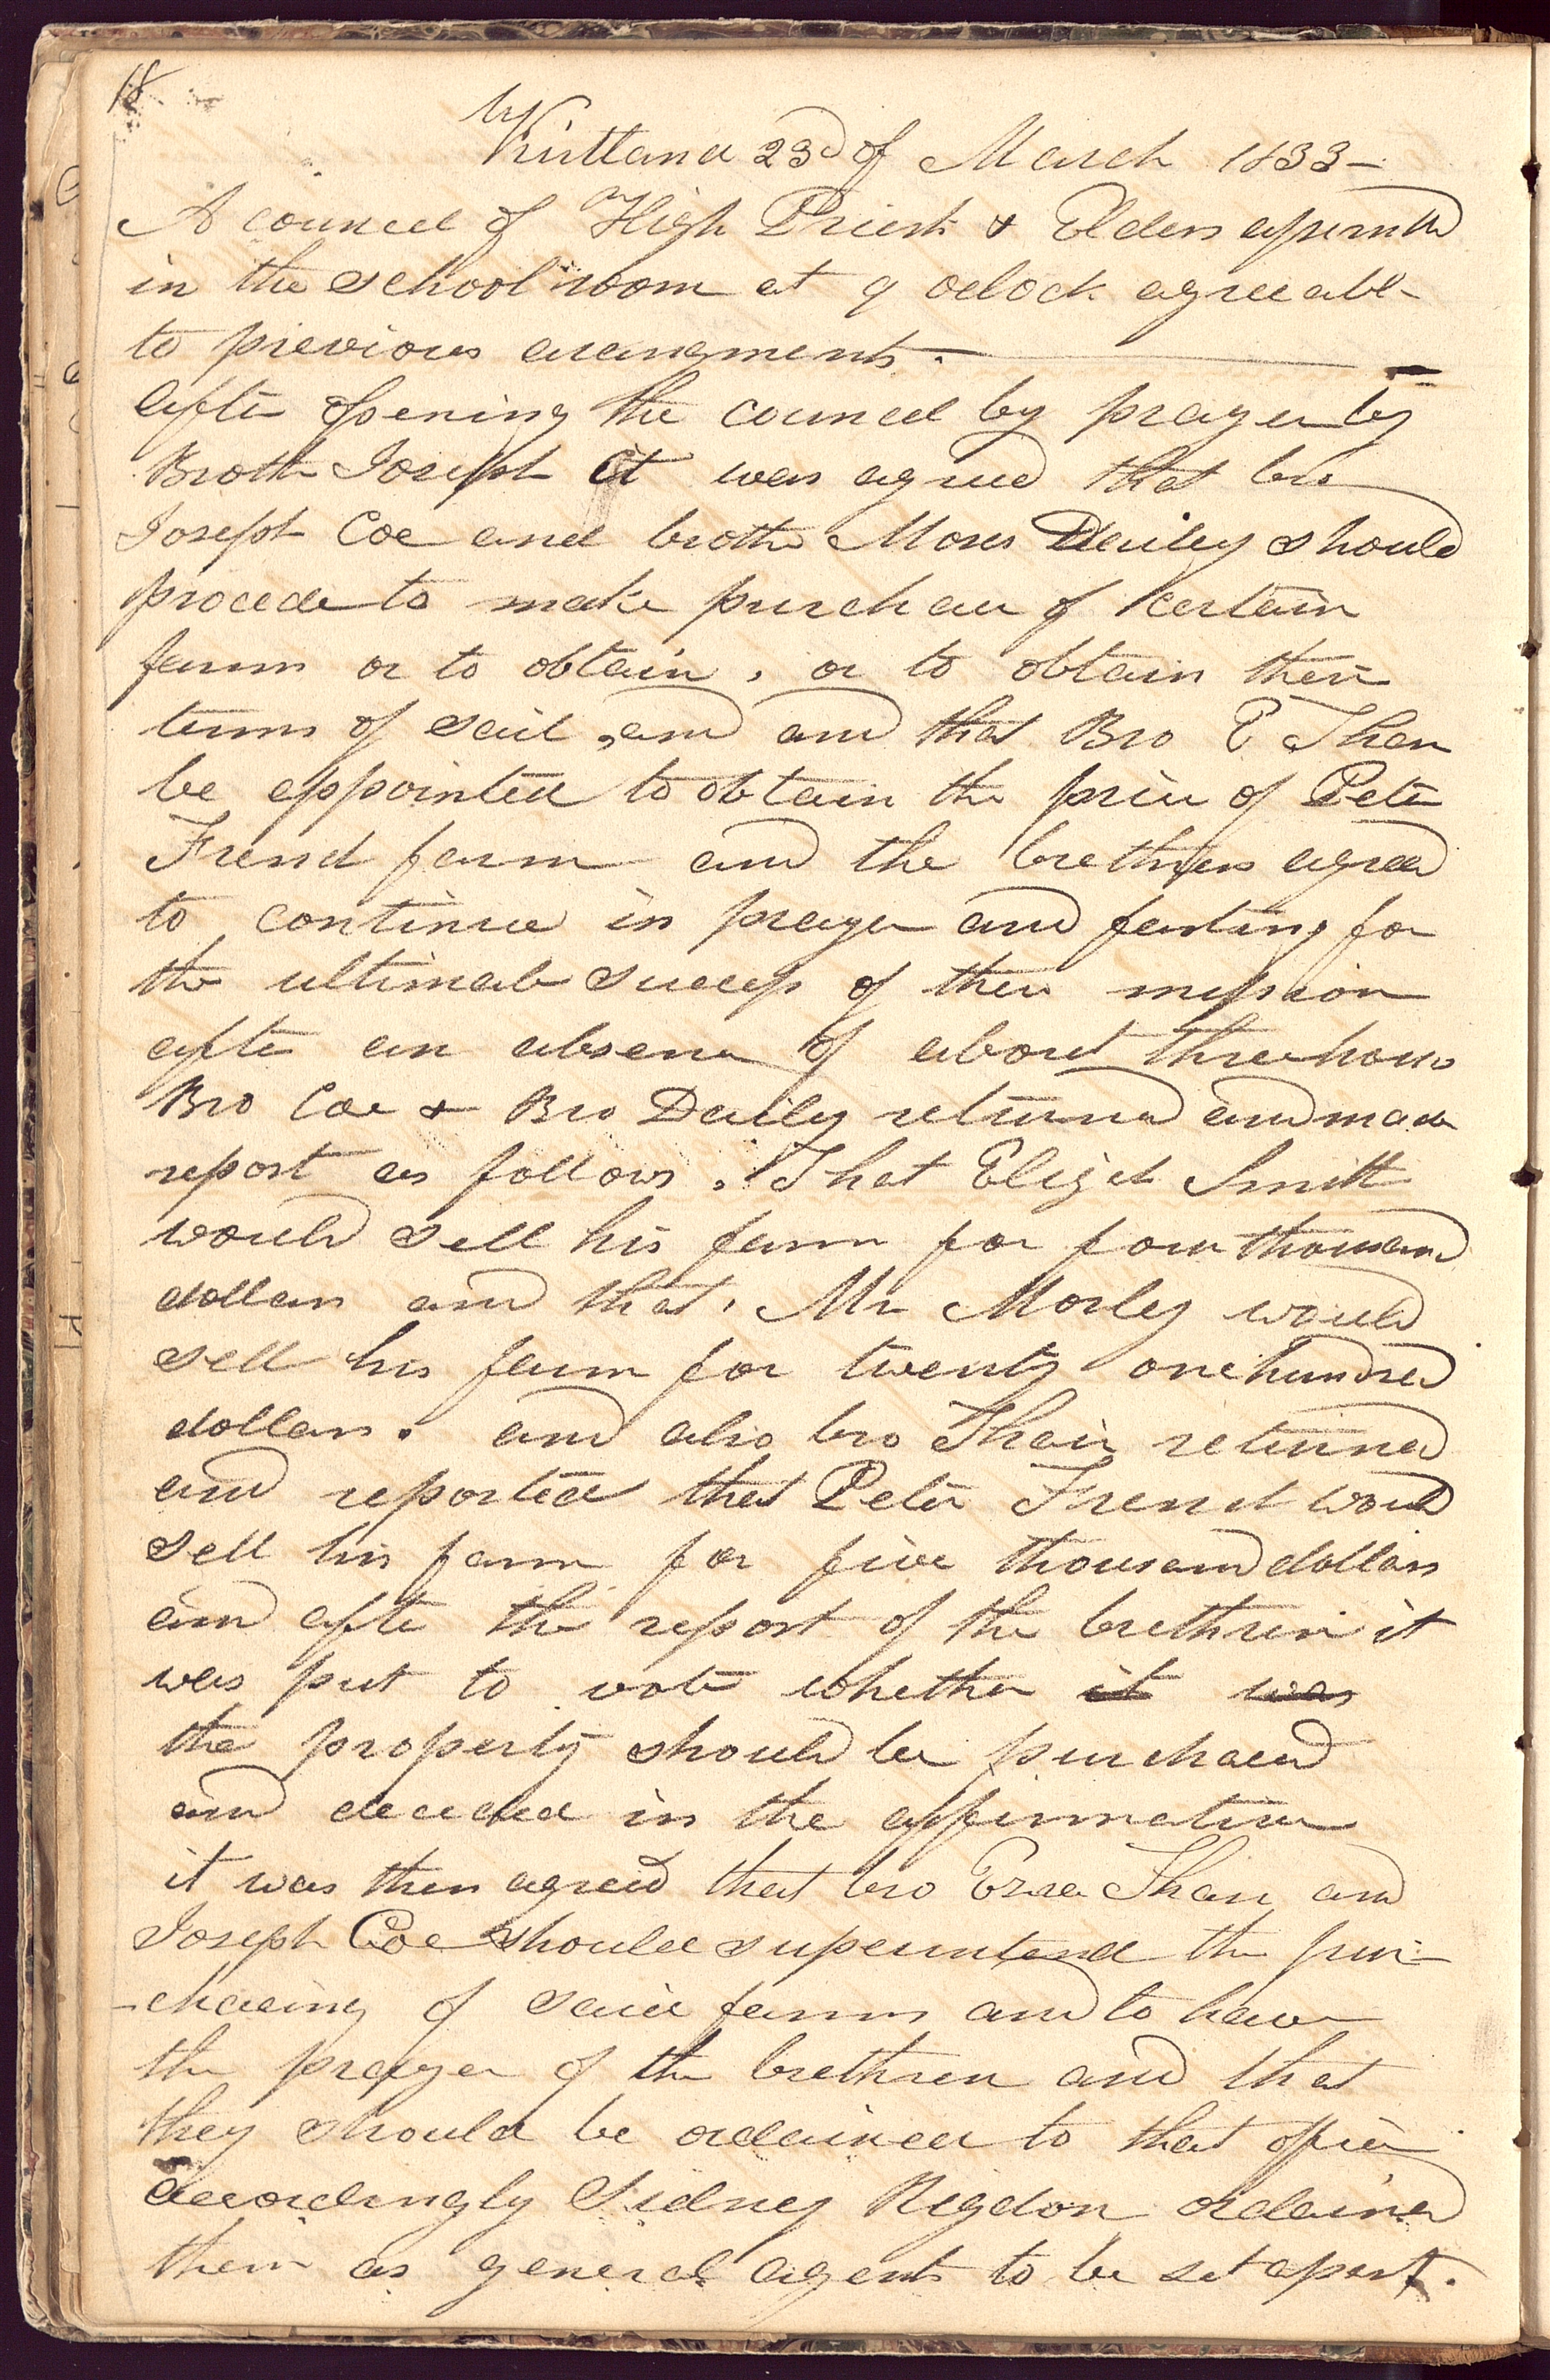 18
Kirtland 23d of March 1833—
A council of High Priests & Elders assembled
in the school room at 9 oclock agreeable
to previous arangments.
after opening the council by prayer by
Brother Joseph it was agreed that bro
Joseph Coe and brother Moses Dailey should
procede to make purchase of certain
farms or to obtain, or to obtain their
terms of sail, and and that Bro E Thare
be appointed to obtain the price of Peter
Frend farm and the brethren agreed
to continue in prayer and fasting for
the ultimate success of their mission
after an absence of about three hours
Bro Coe & Bro Daily returned and made
report as follows, That Elijah Smith
would sell his farm for four thousand
dollars and that, Mr Morley would
sell his farm for twenty one hundred
dollars. and also bro Thair returned
and reported that Peter Frend would
sell his farm for five thousand dollars
and after the report of the brethren it
was put to vote whether it was
the property should be purchased
and decided in the affirmative
it was then agreed that bro Ezra Thair and
Joseph Coe should superintend the pur-
-chasing of said farms and to have
the prayer of the brethren and that
they should be ordained to that office
accordingly Sidney Rigdon ordained
them as general agents to be set apart.